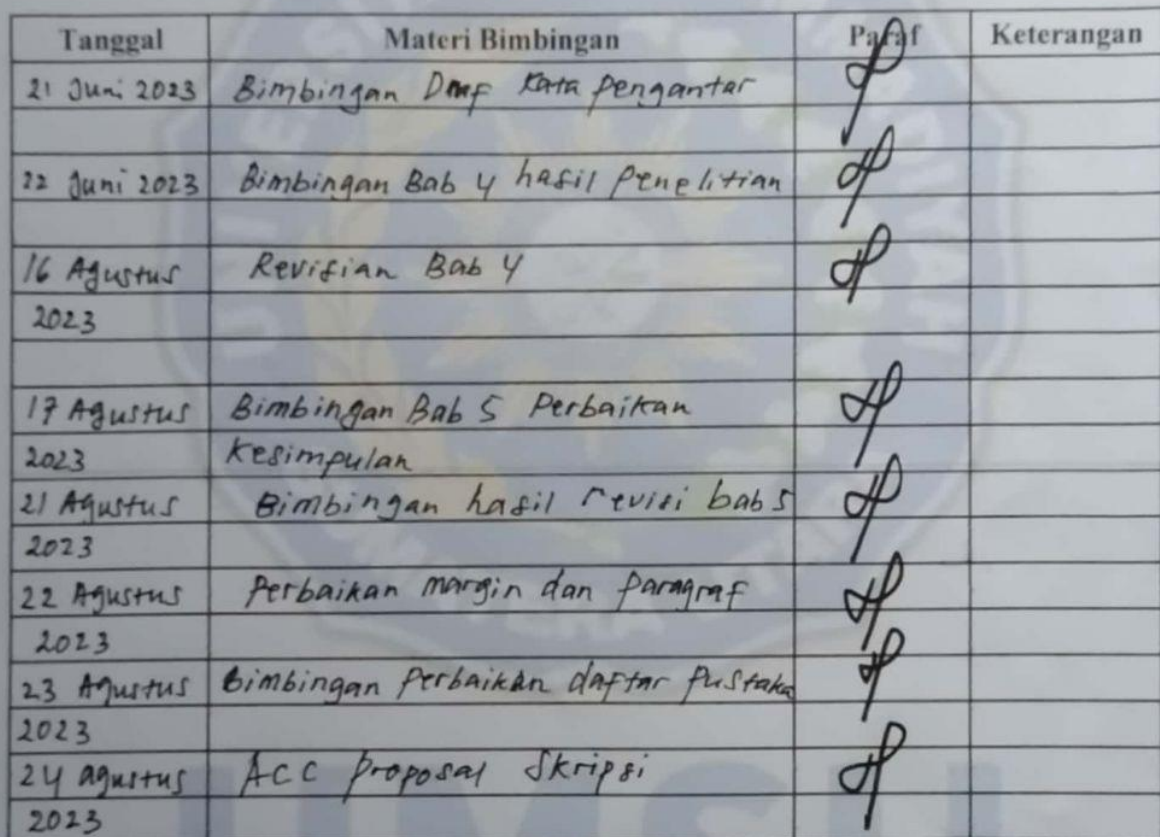 Tanggal Materi Bimbingan Paraf Keterangan
21 Juni 2023 Bimbingan Draf Kata Pengantar
22 Juni 2023 Bimbingan Bab 4 hasil Penelitian
16 Agustus Revisian Bab 4
2023
17 Agustus Bimbingan Bab 5 Perbaikan
2023 Kesimpulan
21 Agustus Bimbingan hasil revisi bab 5
2023
22 Agustus Perbaikan margin dan Paragraf
2023
23 Agustus Bimbingan Perbaikan daftar Pustaka
2023
24 agustus ACC Proposal Skripsi
2023
UMSU